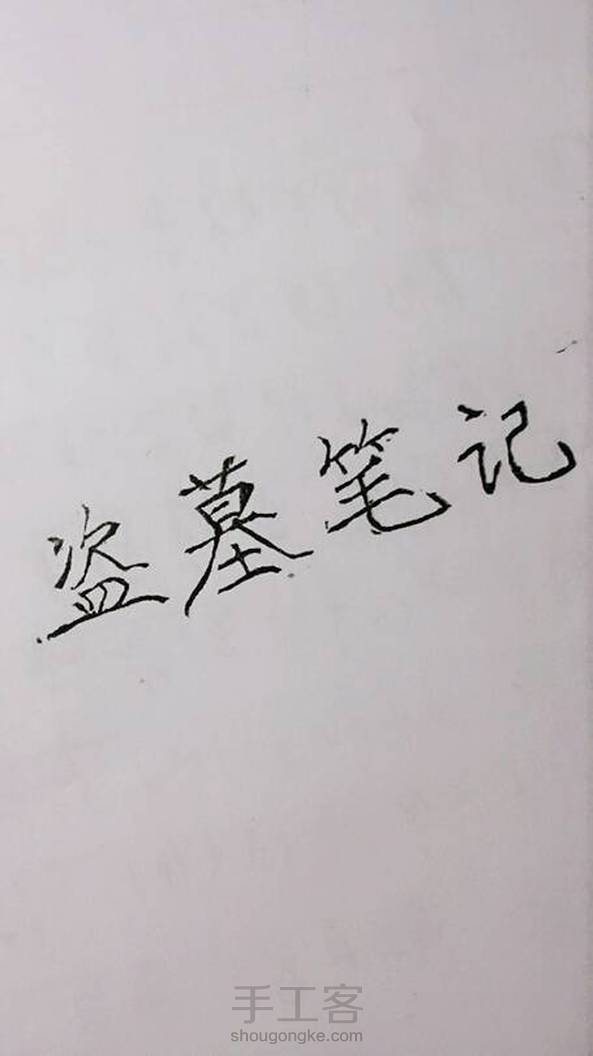 盗墓笔记
手工客
shougongke.com